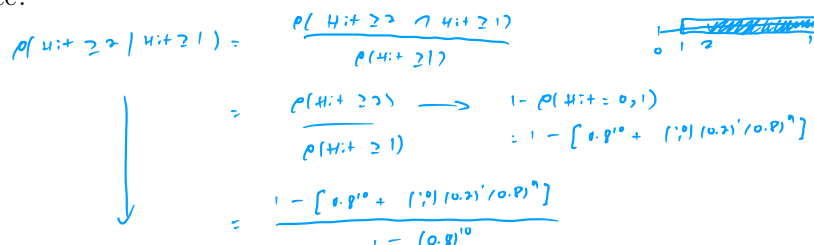 P(Hit ≥ 2 | Hit ≥ 1) = P(Hit ≥ 2 ∩ Hit ≥ 1) / P(Hit ≥ 1)
0 1 2
= P(Hit ≥ 2) / P(Hit ≥ 1) → 1 - P(Hit = 0,1)
= 1 - [0.8^10 + (10 1)(0.2)^1(0.8)^9]
= 1 - [0.8^10 + (10 1)(0.2)^1(0.8)^9] / 1 - (0.8)^10